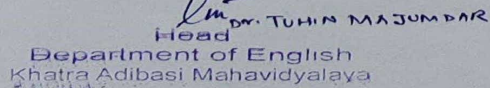 Dr. TUHIN MAJUMDAR
Head
Department of English
Khatra Adibasi Mahavidyalaya